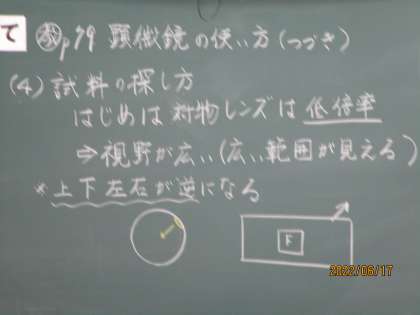 て
教p79 顕微鏡の使い方(つづき)
(4)試料の探し方
はじめは対物レンズは低倍率
⇒視野が広い(広い範囲が見える)
*上下左右が逆になる
F
2022/06/17